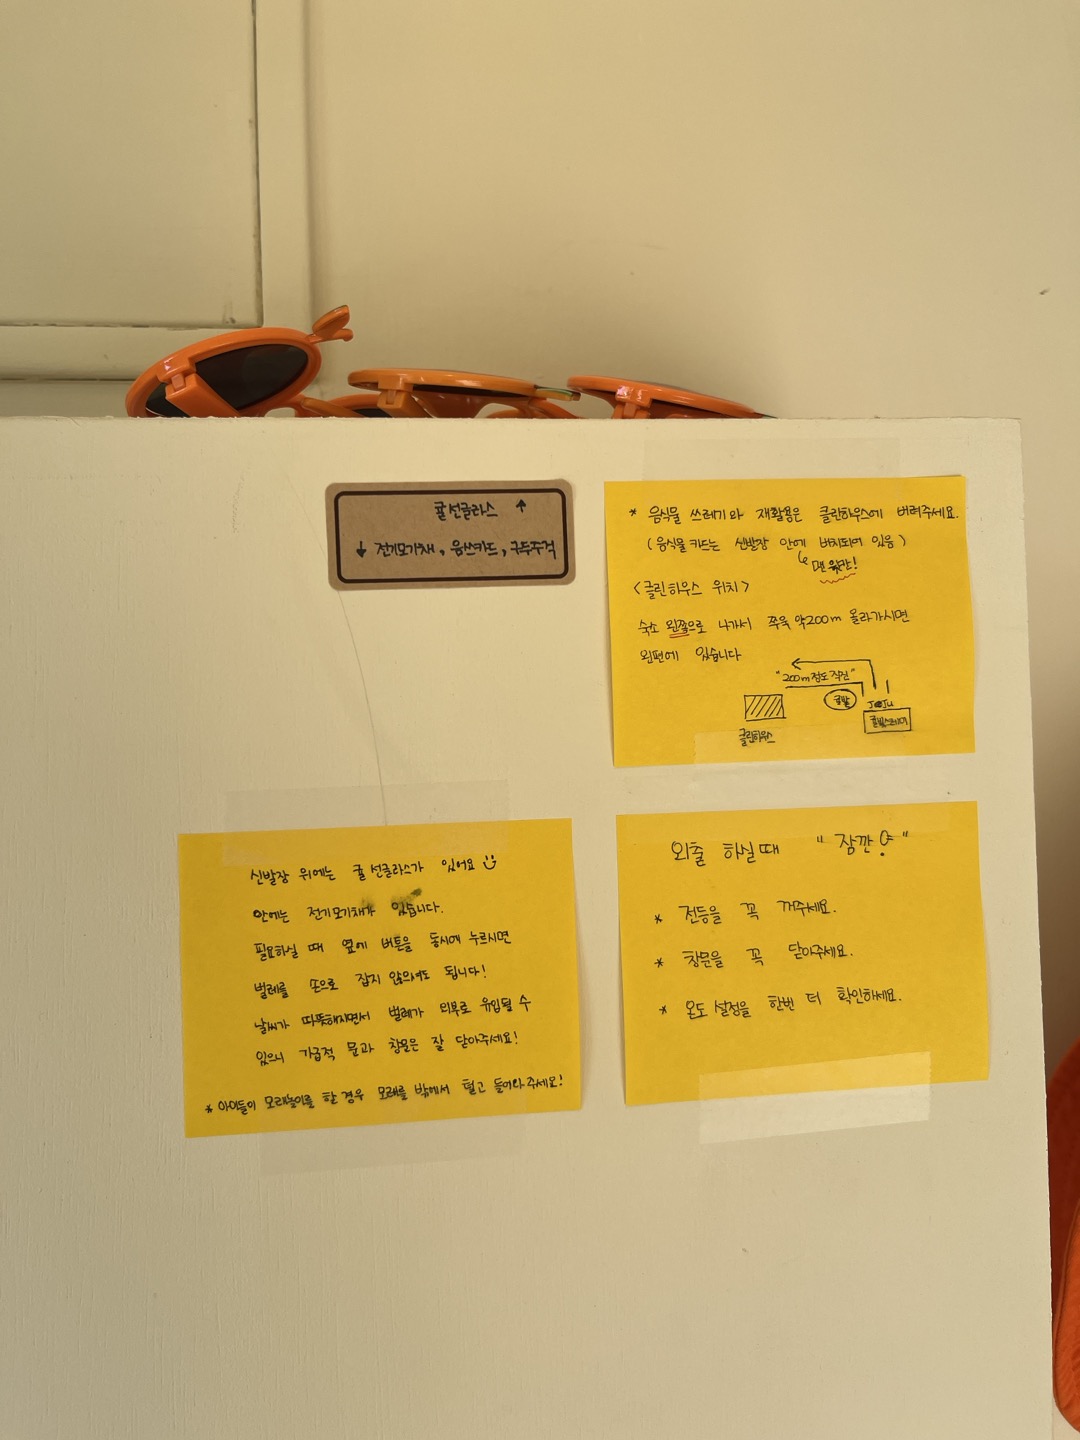 귤 선글라스 ↑
↓ 전기모기채, 음쓰카드, 구두주걱
* 음식물 쓰레기와 재활용은 클린하우스에 버려주세요.
(음식물 카드는 신발장 안에 비치되어 있음)
맨 윗칸!
<클린하우스 위치>
숙소 왼쪽으로 나가서 쭈욱 약 200m 올라가시면
왼편에 있습니다
"200m 정도 직진"
귤밭
JEJU
귤빛스테이
클린하우스
신발장 위에는 귤 선글라스가 있어요
안에는 전기모기채가 있습니다.
필요하실 때 옆에 버튼을 동시에 누르시면
벌레를 손으로 잡지 않으셔도 됩니다!
날씨가 따뜻해지면서 벌레가 외부로 유입될 수
있으니 가급적 문과 창문은 잘 닫아주세요!
* 아이들이 모래놀이를 할 경우 모래를 밖에서 털고 들어와주세요!
외출 하실때 "잠깐!"
* 전등을 꼭 꺼주세요.
* 창문을 꼭 닫아주세요.
* 온도 설정을 한번 더 확인하세요.